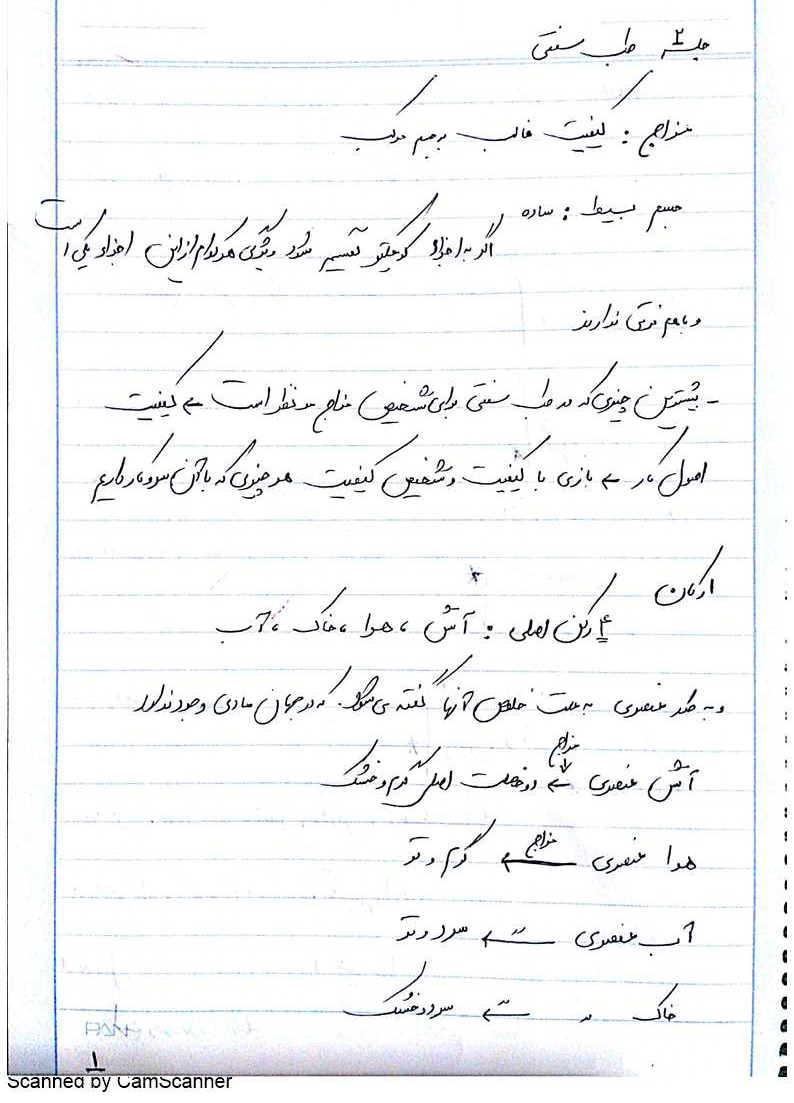 جلسه ۲ طب سنتی
مزاج : کیفیت غالب بر جسم مرکب
جسم بسیط : ساده
اگر به اجزاء کوچکتر تقسیم شود ویژگی هر کدام از این اجزاء یکی است
و باهم فرقی ندارند
- بیشترین چیزی که در طب سنتی برای تشخیص مزاج مد نظر است ← کیفیت
اصول کار ← بازی با کیفیت و تشخیص کیفیت هر چیزی که با آن سروکار داریم
ارکان
۴ رکن اصلی : آتش ، هوا ، خاک ، آب
و به عنصری به علت خلوص آنها گفته می‌شود. که در جهان مادی وجود ندارد
مزاج
آتش عنصری ← دو خصلت اصلی گرم و خشک
هوا عنصری ← مزاج گرم و تر
آب عنصری ← " سرد و تر
خاک " ← " سرد و خشک
۱
Scanned by CamScanner